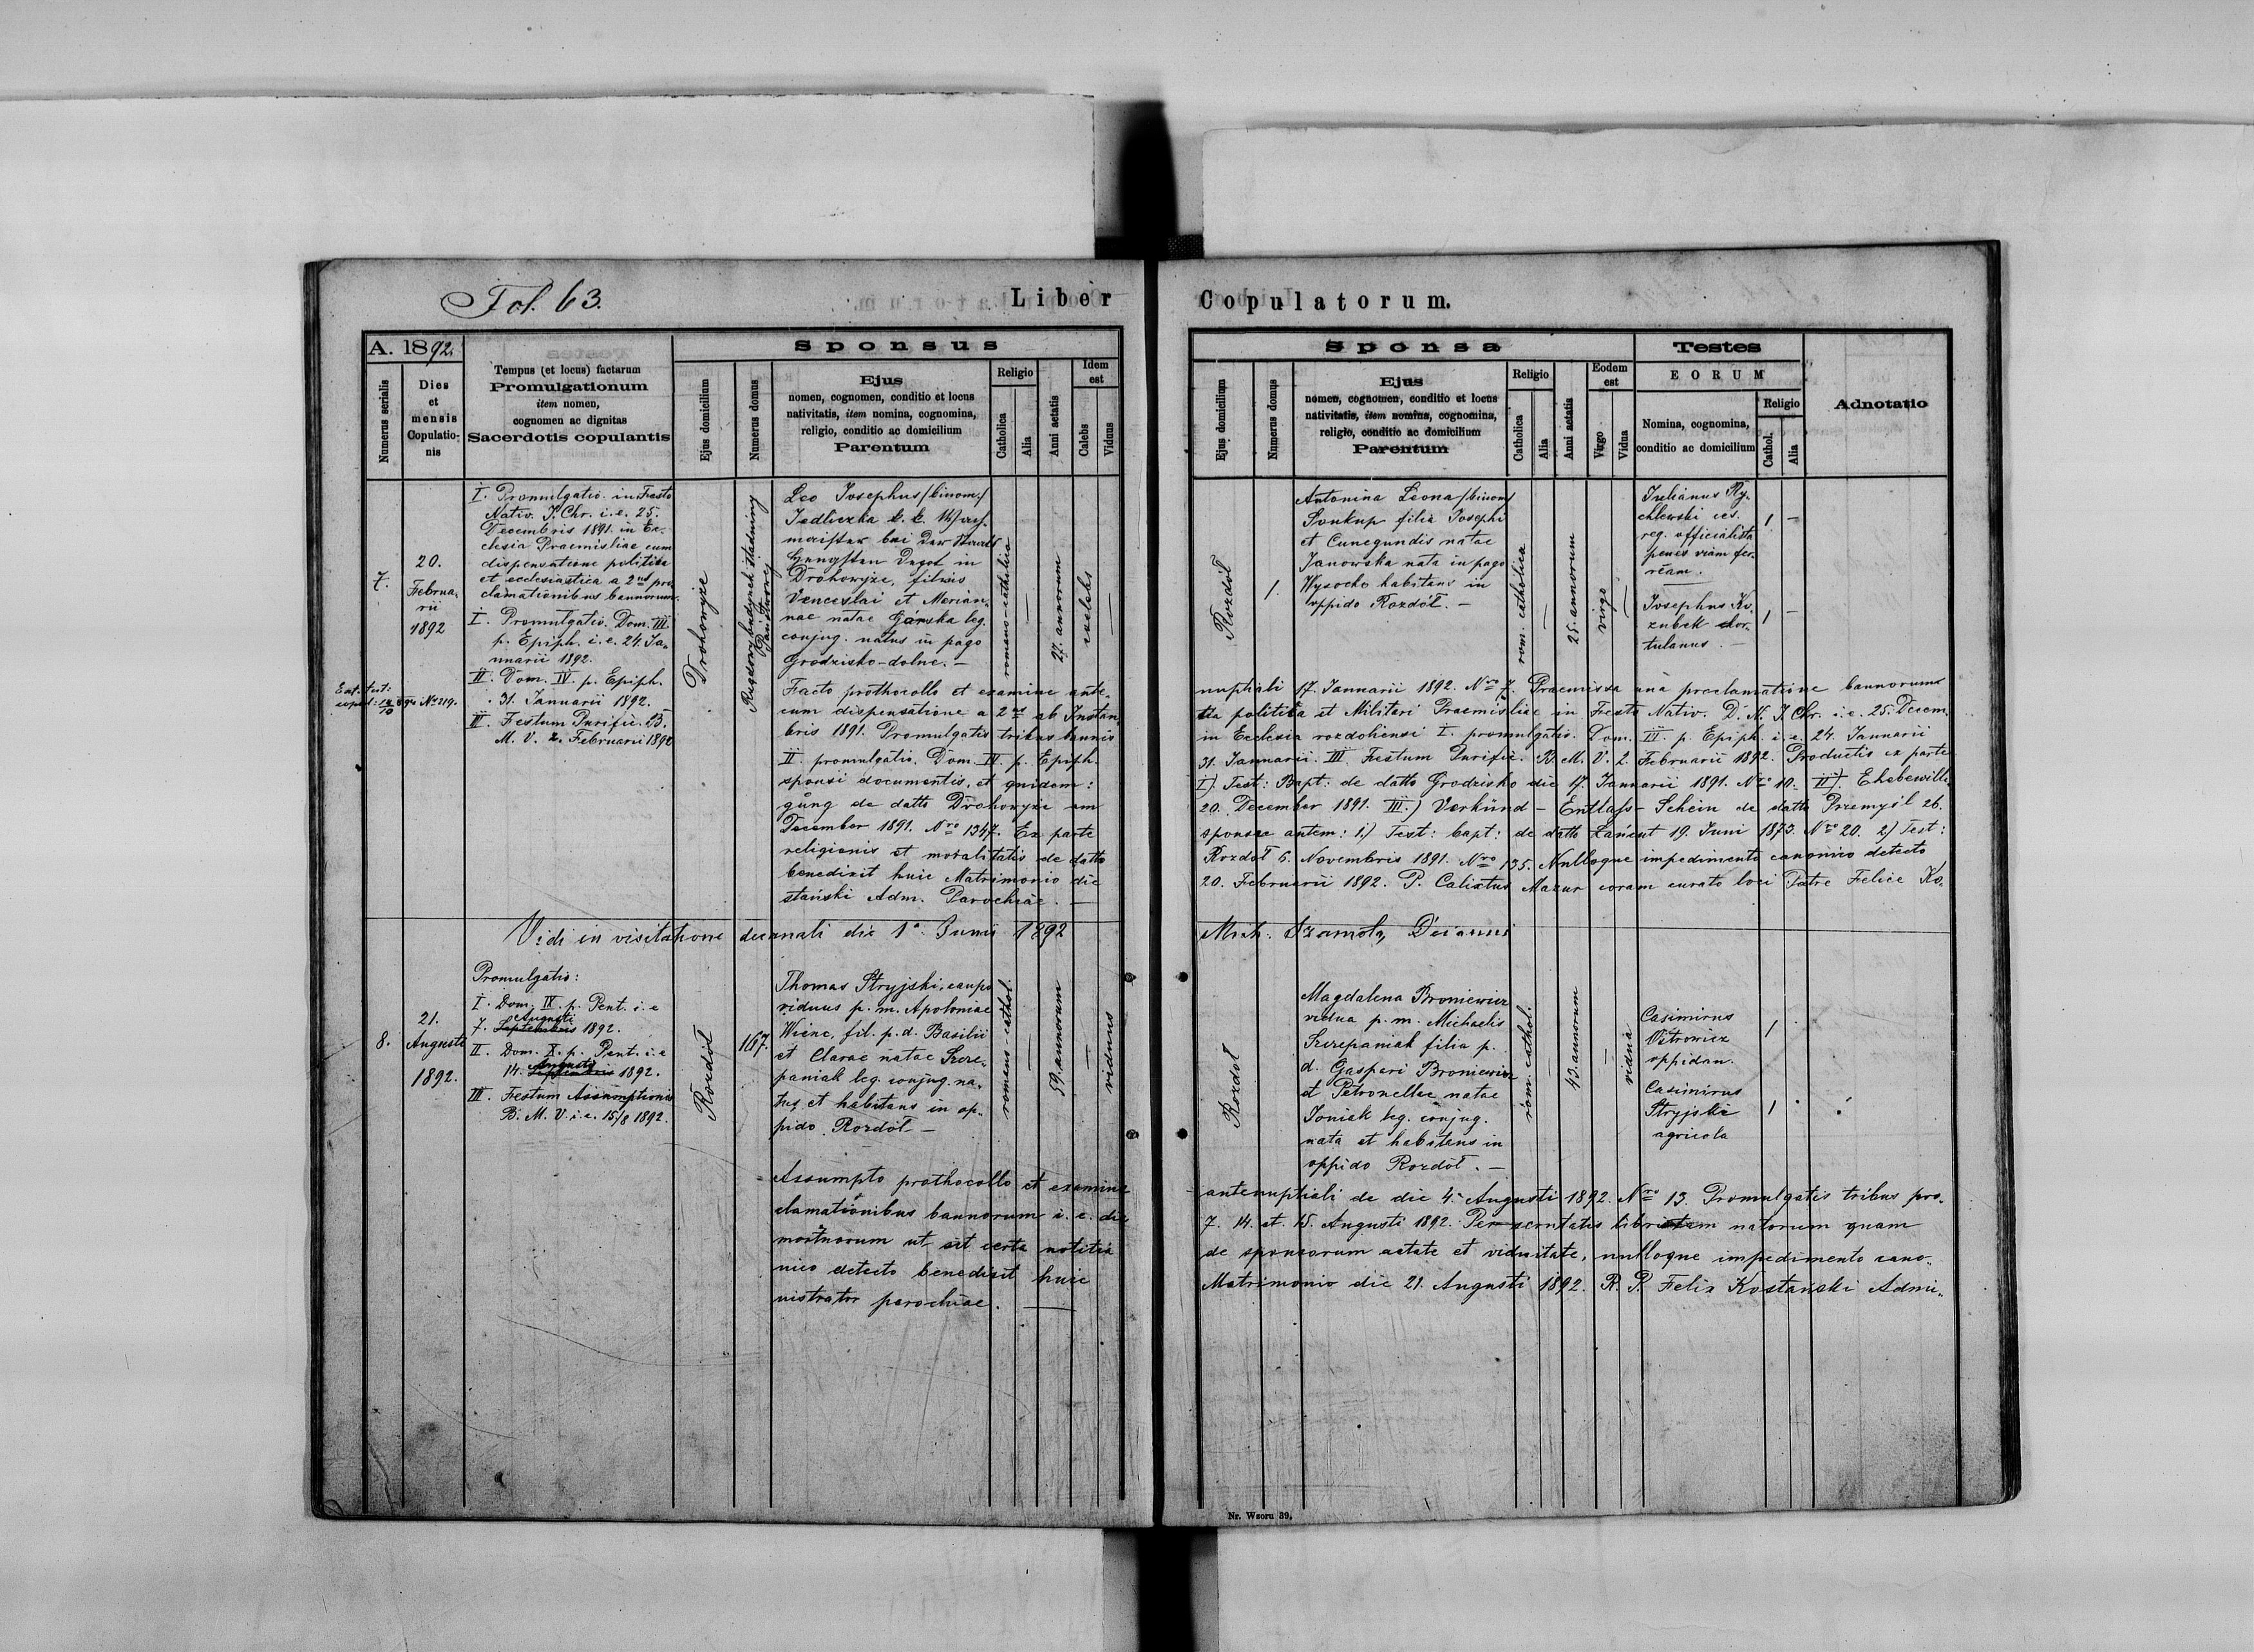 Fol. 63.
Liber
Copulatorum.
A. 1892.
Numerus serialis
Dies
et
mensis
Copulatio-
nis
Tempus (et locus) factarum
Promulgationum
item nomen,
cognomen ac dignitas
Sacerdotis copulantis
Sponsus
Ejus domicilium
Numerus domus
Ejus
nomen, cognomen, conditio et locus
nativitatis, item nomina, cognomina,
religio, conditio ac domicilium
Parentum
Religio
Catholica
Alia
Anni aetatis
Idem
est
Calebs
Viduus
Sponsa
Ejus domicilium
Numerus domus
Ejus
nomen, cognomen, conditio et locus
nativitatis, item nomina, cognomina,
religio, conditio ac domicilium
Parentum
Religio
Catholica
Alia
Anni aetatis
Eodem
est
Virgo
Vidua
Testes
EORUM
Nomina, cognomina,
conditio ac domicilium
Religio
Cathol.
Alia
Adnotatio
7.
20.
Februa-
rii
1892
I. Promulgatio in Festo
Nativ. J. Chr. i. e. 25.
Decembris 1891 in Ec-
clesia Praemisliae cum
dispensatione politica
et ecclesiastica a 2us pro
clamationibus bannorum.
I. Promulgatio. Dom. III.
p. Epiph. i. e. 24. Ja-
nuarii 1892.
II. Dom. IV. p. Epiph.
31. Januarii 1892.
III. Festum Purific. B.
M. V. 2. Februarii 1892
Drohowyże
budynek stadniny
Leo Josephus /binom./
Jedliczka k. k.
meister bei der Staats
Hengsten Depot in
Drohowyże, filius
Venceslai et Marian-
nae natae Górska leg.
conjug. natus in pago
Grodzisko-dolne. —
romano-catholica
—
27. annorum
caelebs
—
Rozdoł
1.
Antonina Leona /binom/
Soukup filia Josephi
et Cunegundis natae
Janowska nata in pago
Wysocko habitans in
oppido Rozdół. —
rom. catholica
—
25. annorum
virgo
—
Julianus Ry-
chlewski ces.
reg. officialista
penes viam fer-
ream.
1 –
Josephus Ko-
zubek hor-
tulanus. —
1 –
Facto prothocollo et examine ante-
nuptiali 17. Januarii 1892. Nro 7. Praemissa una proclamatione bannorum
cum dispensatione a 2us ab Instan
tia politica et Militari Praemisliae in Festo Nativ. D. N. J. Chr. i. e. 25. Decem-
bris 1891. Promulgatis tribus bannis
in Ecclesia rozdoliensi I. promulgatio. Dom. III p. Epiph. i. e. 24. Januarii
II. promulgatio. Dom. IV. p. Epiph.
31. Januarii. III. Festum Purific. B. M. V. 2. Februarii 1892. Productis ex parte
sponsi documentis, et quidem:
I) Test: Bapt: de datto Grodzisko die 17. Januarii 1891. Nro 10. II). Ehebewilli-
gung de datto Drohowyże am
20. December 1891. III.) Verkünd – Entlass – Schein de datto Przemyśl 26.
December 1891. Nro 1347. Ex parte
sponsae autem: 1.) Test: bapt: de datto Łańcut 19. Juni 1873. Nro 20. 2) Test:
religionis et moralitatis de datto
Rozdoł 6. Novembris 1891. Nro 135. Nulloque impedimento canonico detecto
benedixit huic Matrimonio die
20. Februarii 1892. P. Calixtus Mazur coram curato loci Patre Felice Ko-
stański Adm. Parochiae. —
Vidi in visitatione decanali die 1a Junii 1892
8.
21.
Augusti
1892.
Promulgatio:
I. Dom. IX. p. Pent. i. e
Augusti
7. Septembris 1892.
II. Dom. X. p. Pent. i. e
Augusti
14. Septembris 1892.
III. Festum Assumptionis
B. M. V. i. e. 15/8 1892.
Rozdół
167.
Thomas Stryjski, caupo
viduus p. m. Apoloniae
Wienc, fil. p. d. Basilii
et Clarae natae Szcze-
paniak leg. conjug. na-
tus et habitans in op-
pido Rozdół —
romano-cathol.
—
59. annorum
—
viduus
Rozdoł
Magdalena Broniewicz
vidua p. m. Michaelis
Szczepaniak filia p.
d. Gaspari Broniewicz
et Petronellae natae
Joniak leg. conjug.
nata et habitans in
oppido Rozdół. —
rom. cathol.
—
43. annorum
—
vidua
Casimirus
Witrowicz
oppidan.
1
Casimirus
Stryjski
agricola
1
Assumpto prothocollo et examine
antenuptiali de die 4. Augusti 1892. Nro 13. Promulgatis tribus pro-
clamationibus bannorum i. e. die
7. 14. et. 15. Augusti 1892. Perscrutatis libris tam natorum quam
mortuorum ut sit certa notitia
de sponsorum aetate et viduitate, nulloque impedimento cano-
nico detecto benedixit huic
Matrimonio die 21. Augusti 1892. R. P. Felix Kostański Admi-
nistrator parochiae. —
Nr. Wzoru 39.